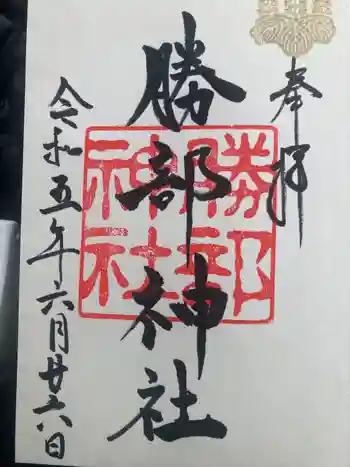 奉拝
勝部神社
勝部
神社
令和五年六月廿六日